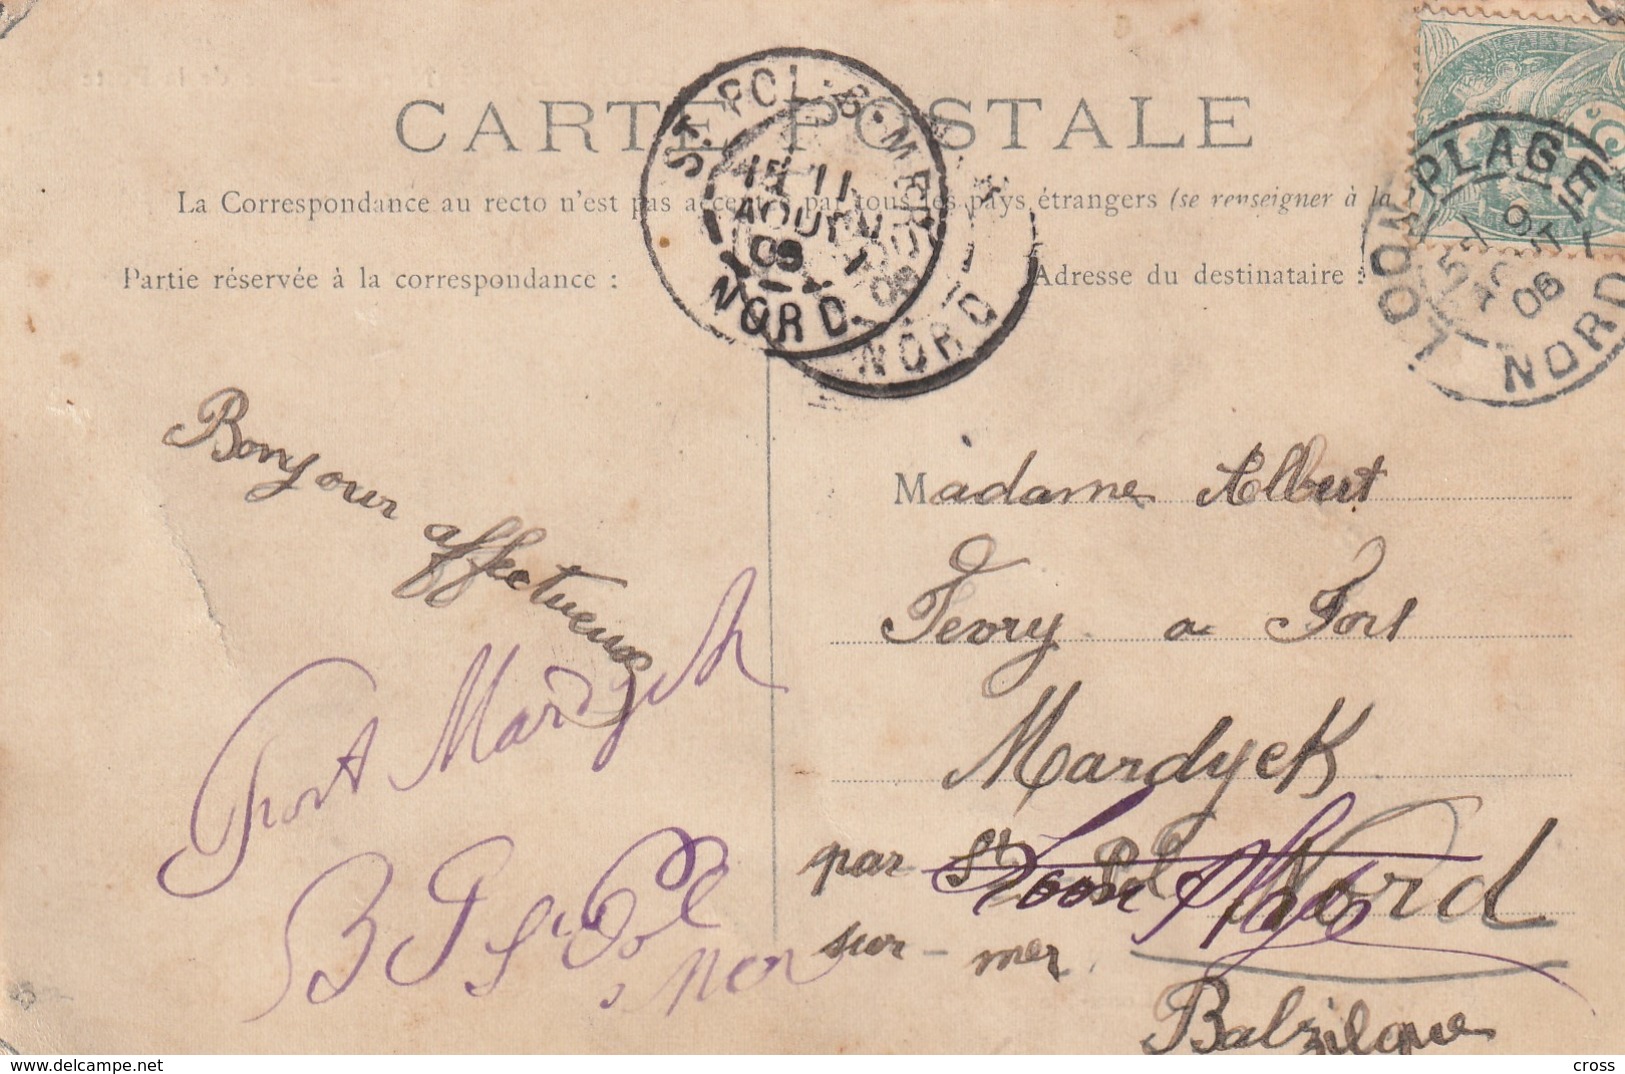 CARTE POSTALE
La Correspondance au recto n'est pas acceptée par tous les pays étrangers (se renseigner à la
Partie réservée à la correspondance :
Adresse du destinataire :
ST POL-S-MER
11
AOUT
NORD
NORD
LOON-PLAGE
06
NORD
Bonjour
affectueux
Fort Mardyck
St Pol
s Mer
Madame Albert
Fevry a Fort
Mardyck
par St Pol Nord
Loon Plage
sur - mer
Balzileque
delcampe.net
cross